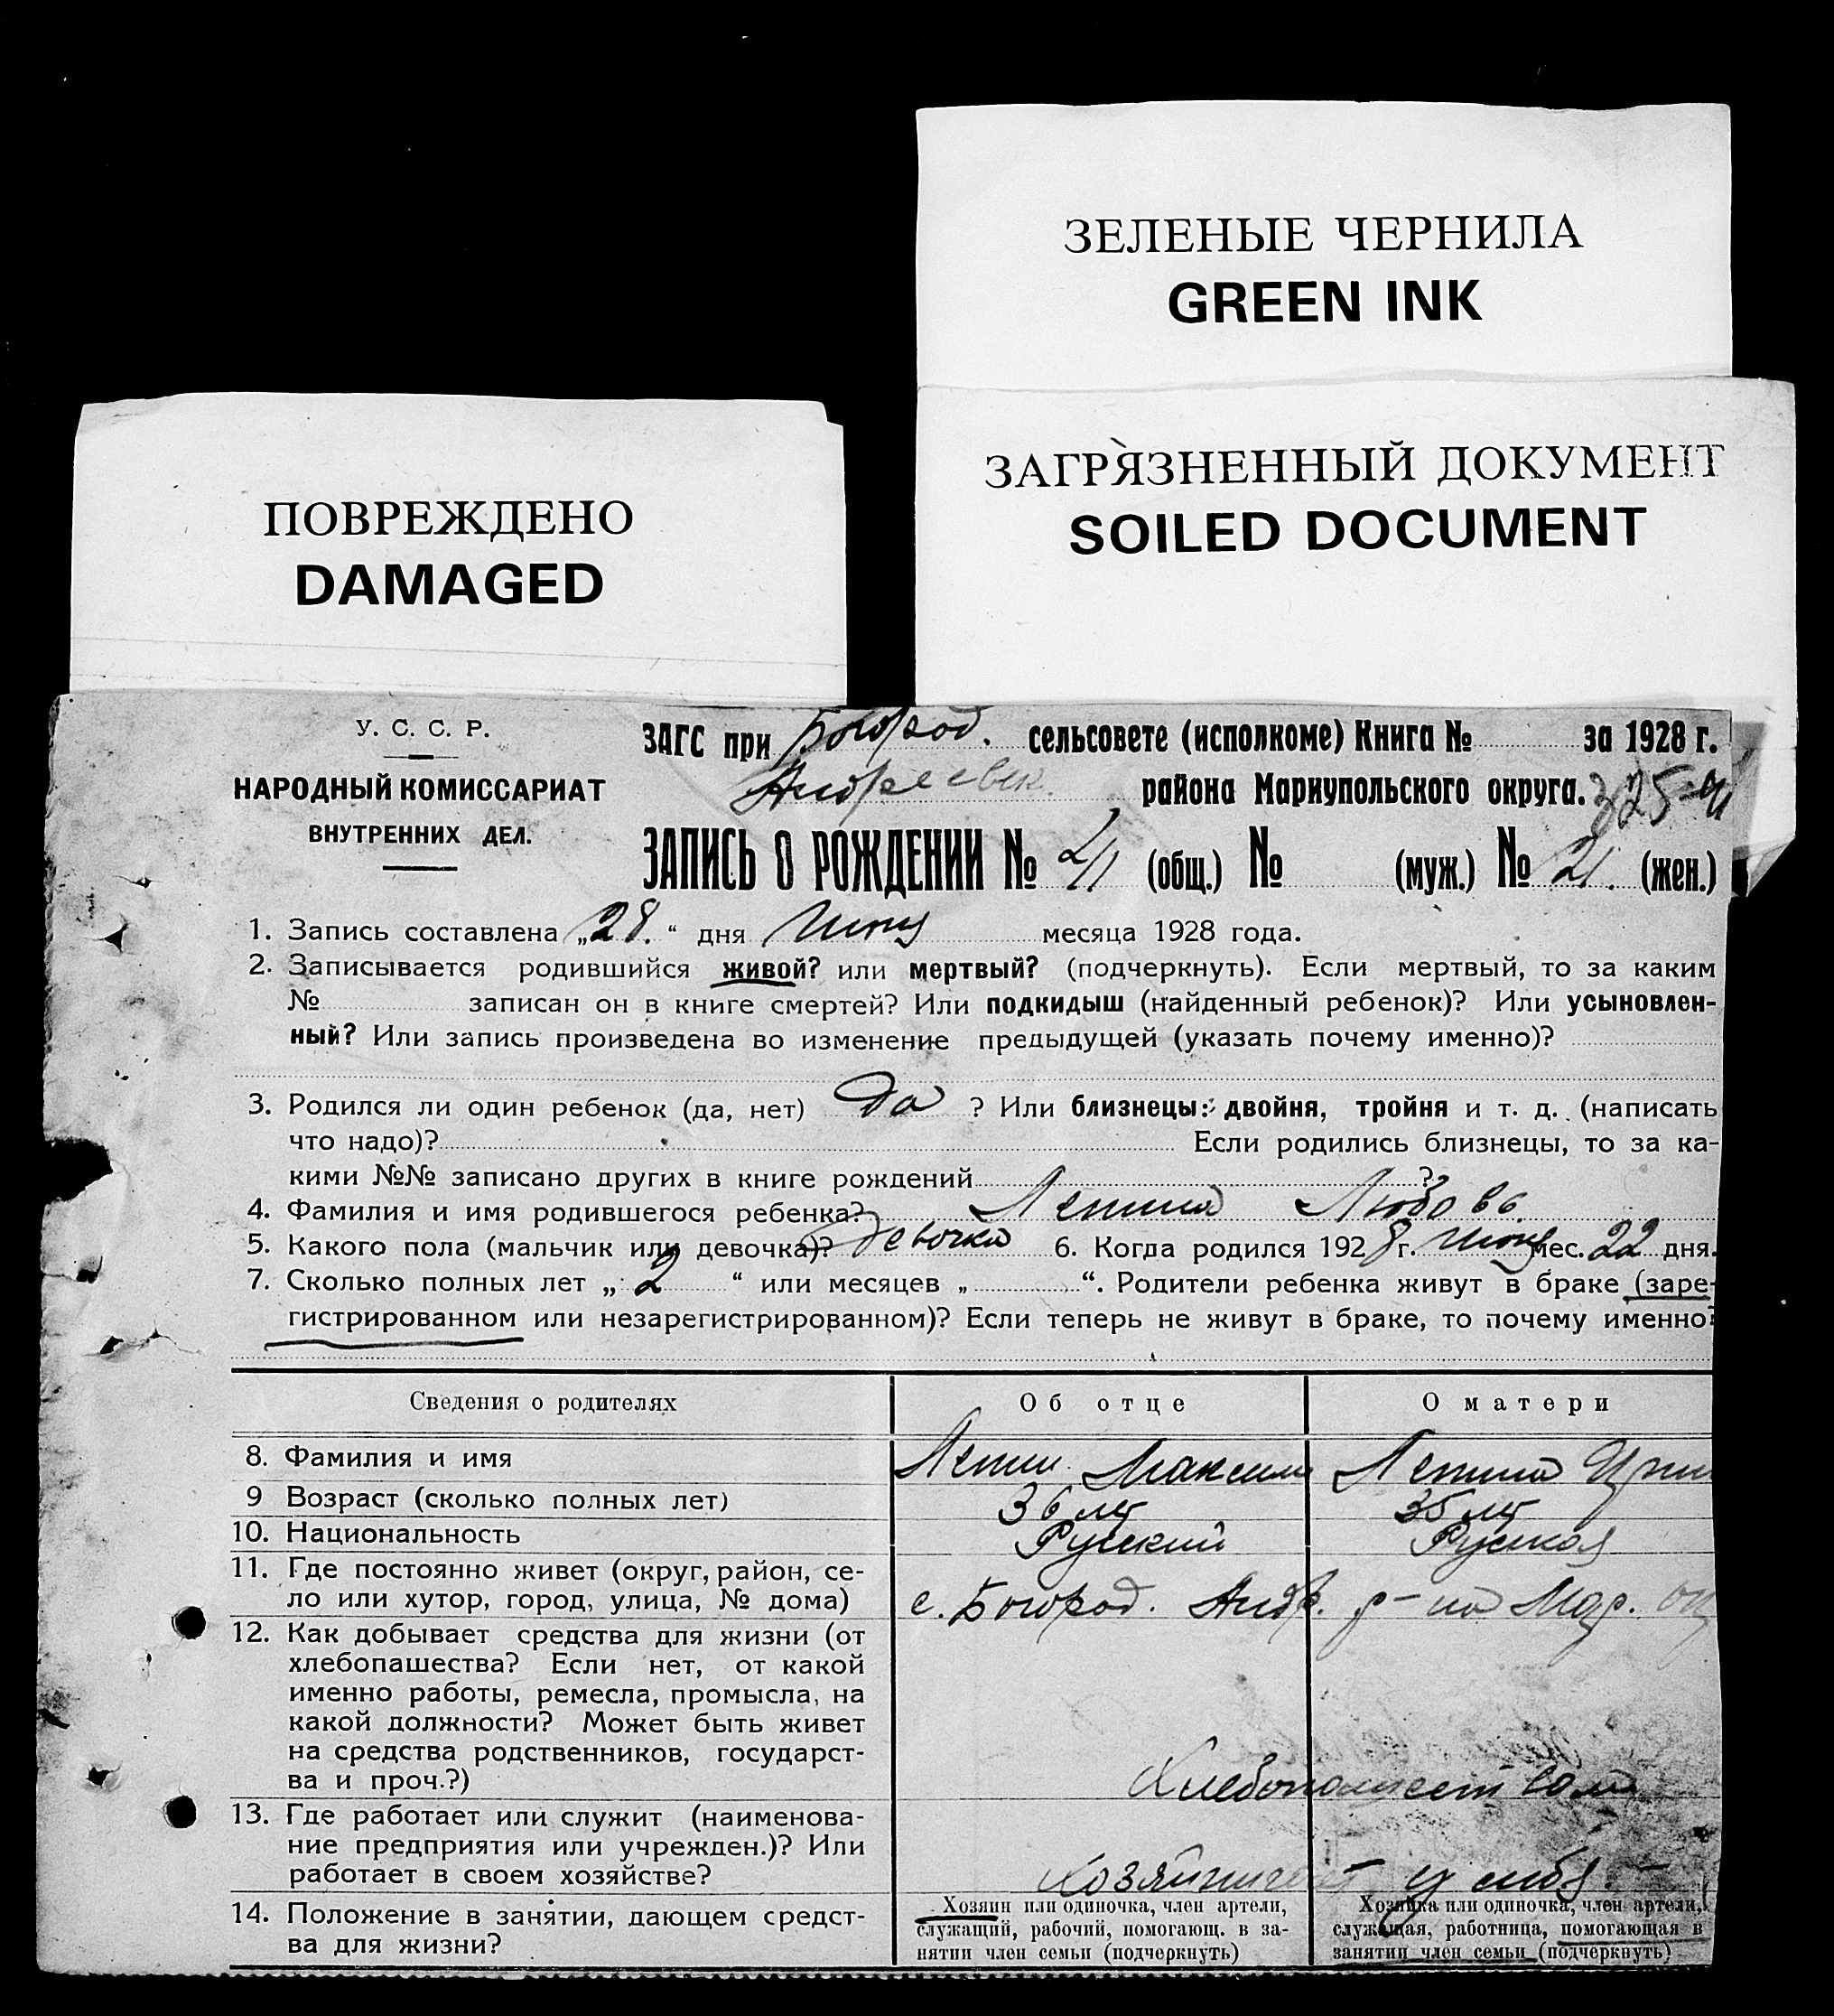 ЗЕЛЕНЫЕ ЧЕРНИЛА
GREEN INK
ЗАГРЯЗНЕННЫЙ ДОКУМЕНТ
SOILED DOCUMENT
ПОВРЕЖДЕНО
DAMAGED
У. С. С. Р.
НАРОДНЫЙ КОМИССАРИАТ
ВНУТРЕННИХ ДЕЛ.
ЗАГС при Богород. сельсовете (исполкоме) Книга № за 1928 г.
Андреевск. района Мариупольского округа.
ЗАПИСЬ О РОЖДЕНИИ № (общ.) № (муж.) № 21. (жен.)
1. Запись составлена „28.“ дня Июня месяца 1928 года.
2. Записывается родившийся живой? или мертвый? (подчеркнуть). Если мертвый, то за каким
№ записан он в книге смертей? Или подкидыш (найденный ребенок)? Или усыновлен-
ный? Или запись произведена во изменение предыдущей (указать почему именно)?
3. Родился ли один ребенок (да, нет) да ? Или близнецы: двойня, тройня и т. д. (написать
что надо)? Если родились близнецы, то за ка-
кими №№ записано других в книге рождений ?
4. Фамилия и имя родившегося ребенка? Любовь.
5. Какого пола (мальчик или девочка)? Девочка 6. Когда родился 1928 г. Июня мес. 22 дня.
7. Сколько полных лет „ 2 “ или месяцев „ “. Родители ребенка живут в браке (заре-
гистрированном или незарегистрированном)? Если теперь не живут в браке, то почему именно?
Сведения о родителях Об отце О матери
8. Фамилия и имя Максим
9 Возраст (сколько полных лет) 36 лет 35 лет
10. Национальность Русский Руская
11. Где постоянно живет (округ, район, се-
ло или хутор, город, улица, № дома) с. Богород. Андр. р-на Мар.
12. Как добывает средства для жизни (от
хлебопашества? Если нет, от какой
именно работы, ремесла, промысла, на
какой должности? Может быть живет
на средства родственников, государст-
ва и проч.?) Хлебопашеством
13. Где работает или служит (наименова-
ние предприятия или учрежден.)? Или
работает в своем хозяйстве? у себя.
14. Положение в занятии, дающем средст-
ва для жизни?
Хозяин или одиночка, член артели,
служащий, рабочий, помогающ. в за-
нятии член семьи (подчеркнуть)
Хозяйка или одиночка, член артели,
служащая, работница, помогающая в
занятии член семьи (подчеркнуть)